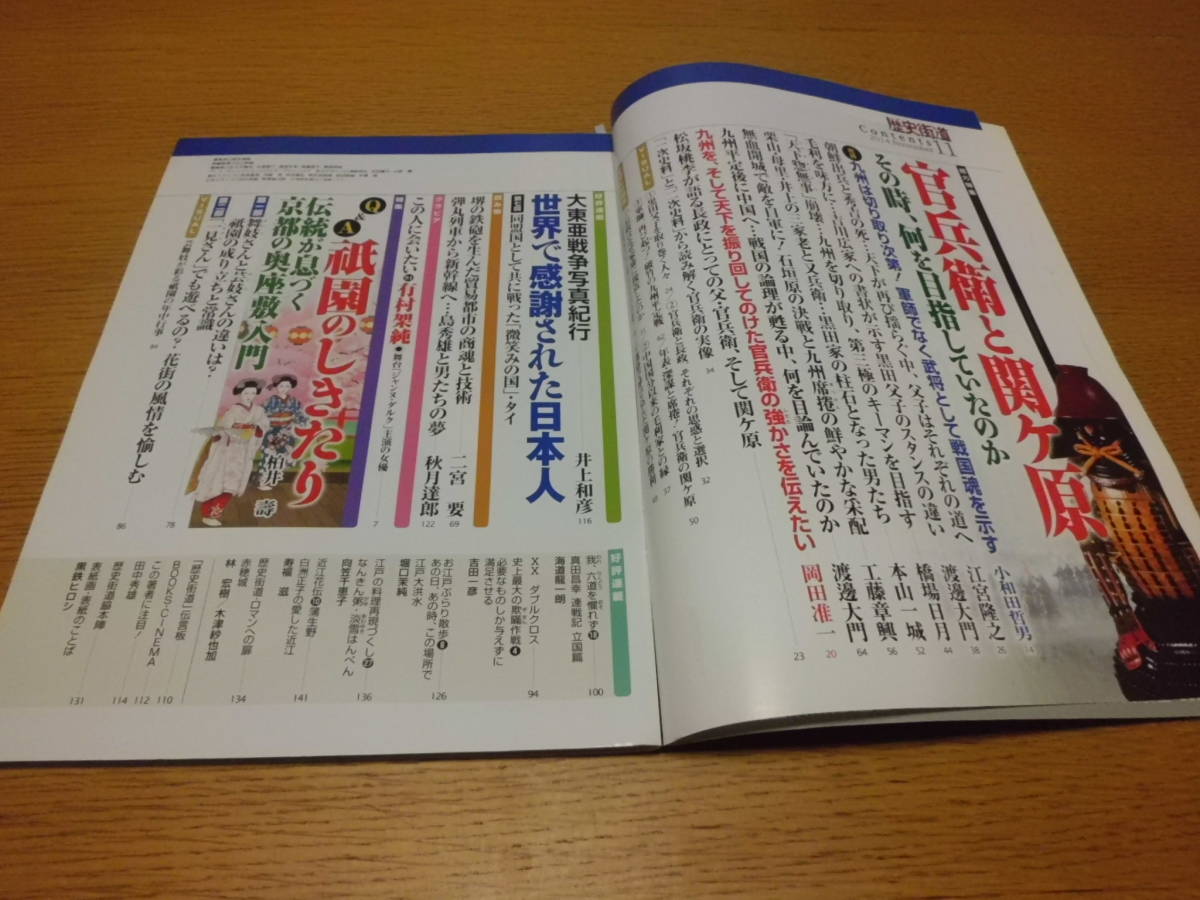 歴史街道
Contents 11
2014 November
官兵衛と関ケ原
その時、何を目指していたのか
九州は切り取り次第! 軍師でなく武将として戦国魂を示す 小和田哲男 14
朝鮮出兵と秀吉の死…天下が再び揺らぐ中、父子はそれぞれの道へ 江宮隆之 26
毛利を味方に!吉川広家への書状が示す黒田父子のスタンスの違い 渡邊大門 38
「天下惣無事」崩壊…九州を切り取り、第三極のキーマンを目指す 橋場日月 44
栗山・母里・井上の三家老と又兵衛…黒田家の柱石となった男たち 本山一城 52
無血開城で敵を自軍に!石垣原の決戦と九州席捲の鮮やかな采配 工藤章興 56
九州平定後に中国へ…戦国の論理が甦る中、何を目論んでいたのか 渡邊大門 64
九州を、そして天下を振り回してのけた官兵衛の強かさを伝えたい 岡田准一 20
松坂桃李が語る長政にとっての父・官兵衛、そして関ケ原 23
「一次史料」と「二次史料」から読み解く官兵衛の実像 34
ビジュアル
大東亜戦争写真紀行
世界で感謝された日本人 井上和彦 116
同盟国として共に戦った「微笑みの国」・タイ
堺の鉄砲を生んだ貿易都市の商魂と技術 二宮 要 69
グラビア
弾丸列車から新幹線へ…島秀雄と男たちの夢 秋月達郎 122
この人に会いたい 有村架純 ●舞台「ジャンヌ・ダルク」主演の女優 7
Q&A 祇園のしきたり
伝統が息づく京都の奥座敷入門 柏井 壽
第一部 舞妓さんと芸妓さんの違いは?祇園の成り立ちと常識 78
第二部 「一見さん」でも遊べるの?花街の風情を愉しむ 86
ビジュアル
好評連載
我、六道を懼れず 18
真田昌幸 連戦記 立国篇
海道龍一朗 100
XX ダブルクロス
史上最大の欺瞞作戦 4
必要なものしか与えずに満足させる
吉田一彦 94
お江戸ぶらり散歩 8
あの日、あの時、この場所で
江戸大洪水
堀口茉純 126
江戸の料理再現づくし 27
なんきん粥・淡雪はんぺん
向笠千恵子 136
近江花伝 10 蒲生野
白洲正子の愛した近江
寿福 滋 141
歴史街道・ロマンへの扉
赤穂城
林 宏樹 木津紗也加 134
「歴史街道」伝言板 110
BOOKS・CINEMA
この著者に注目!
田中秀雄 112
歴史街道脇本陣 114
表紙画・表紙のことば
黒鉄ヒロシ 131